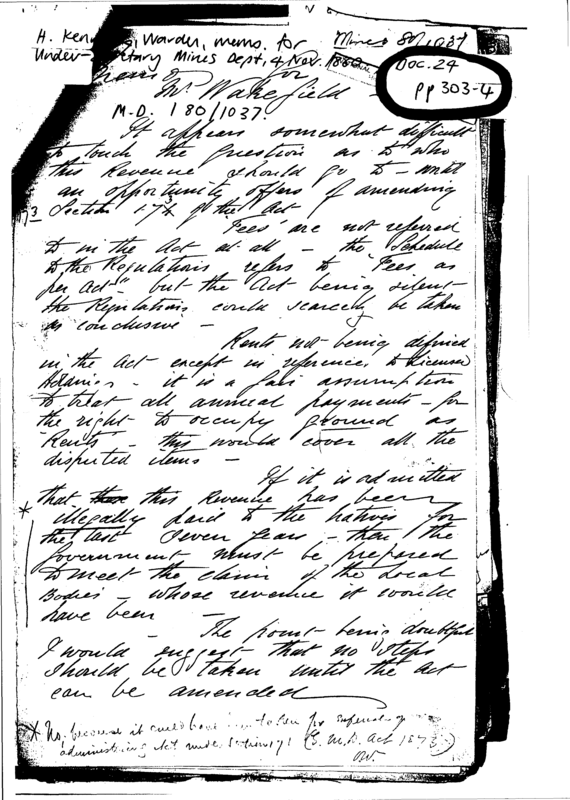 H. Ken Warden, memo. for
Under-Secretary Mines Dept, 4 Nov. 1880
Mines 80/1037
Doc. 24
pp 303-4
for
Mr Wakefield
M.D. 180/1037.
It appears somewhat difficult
to touch the question as to who
this Revenue should go to - until
an opportunity offers of amending
Section 173 of the Act
173
"Fees" are not referred
to in the Act at all - the Schedule
to the Regulations refers to "Fees as
per Act" but the Act being silent -
the Regulations could scarcely be taken
as conclusive -
Rents not being defined
in the Act - except in reference to Licensed
Holdings - it is a fair assumption
to treat all annual payments - for
the right to occupy ground as
"Rents" - this would cover all the
disputed items -
If it is admitted
that this Revenue has been
* illegally paid to the natives for
the last seven years - then the
Government must be prepared
to meet the claim of the Local
Bodies - whose revenue it would
have been -
The point being doubtful
I would suggest that no steps
should be taken until the Act
can be amended
* No. because it could have been taken for expenses of
administering Act under section 171 G.M.D. Act 1873
OW.